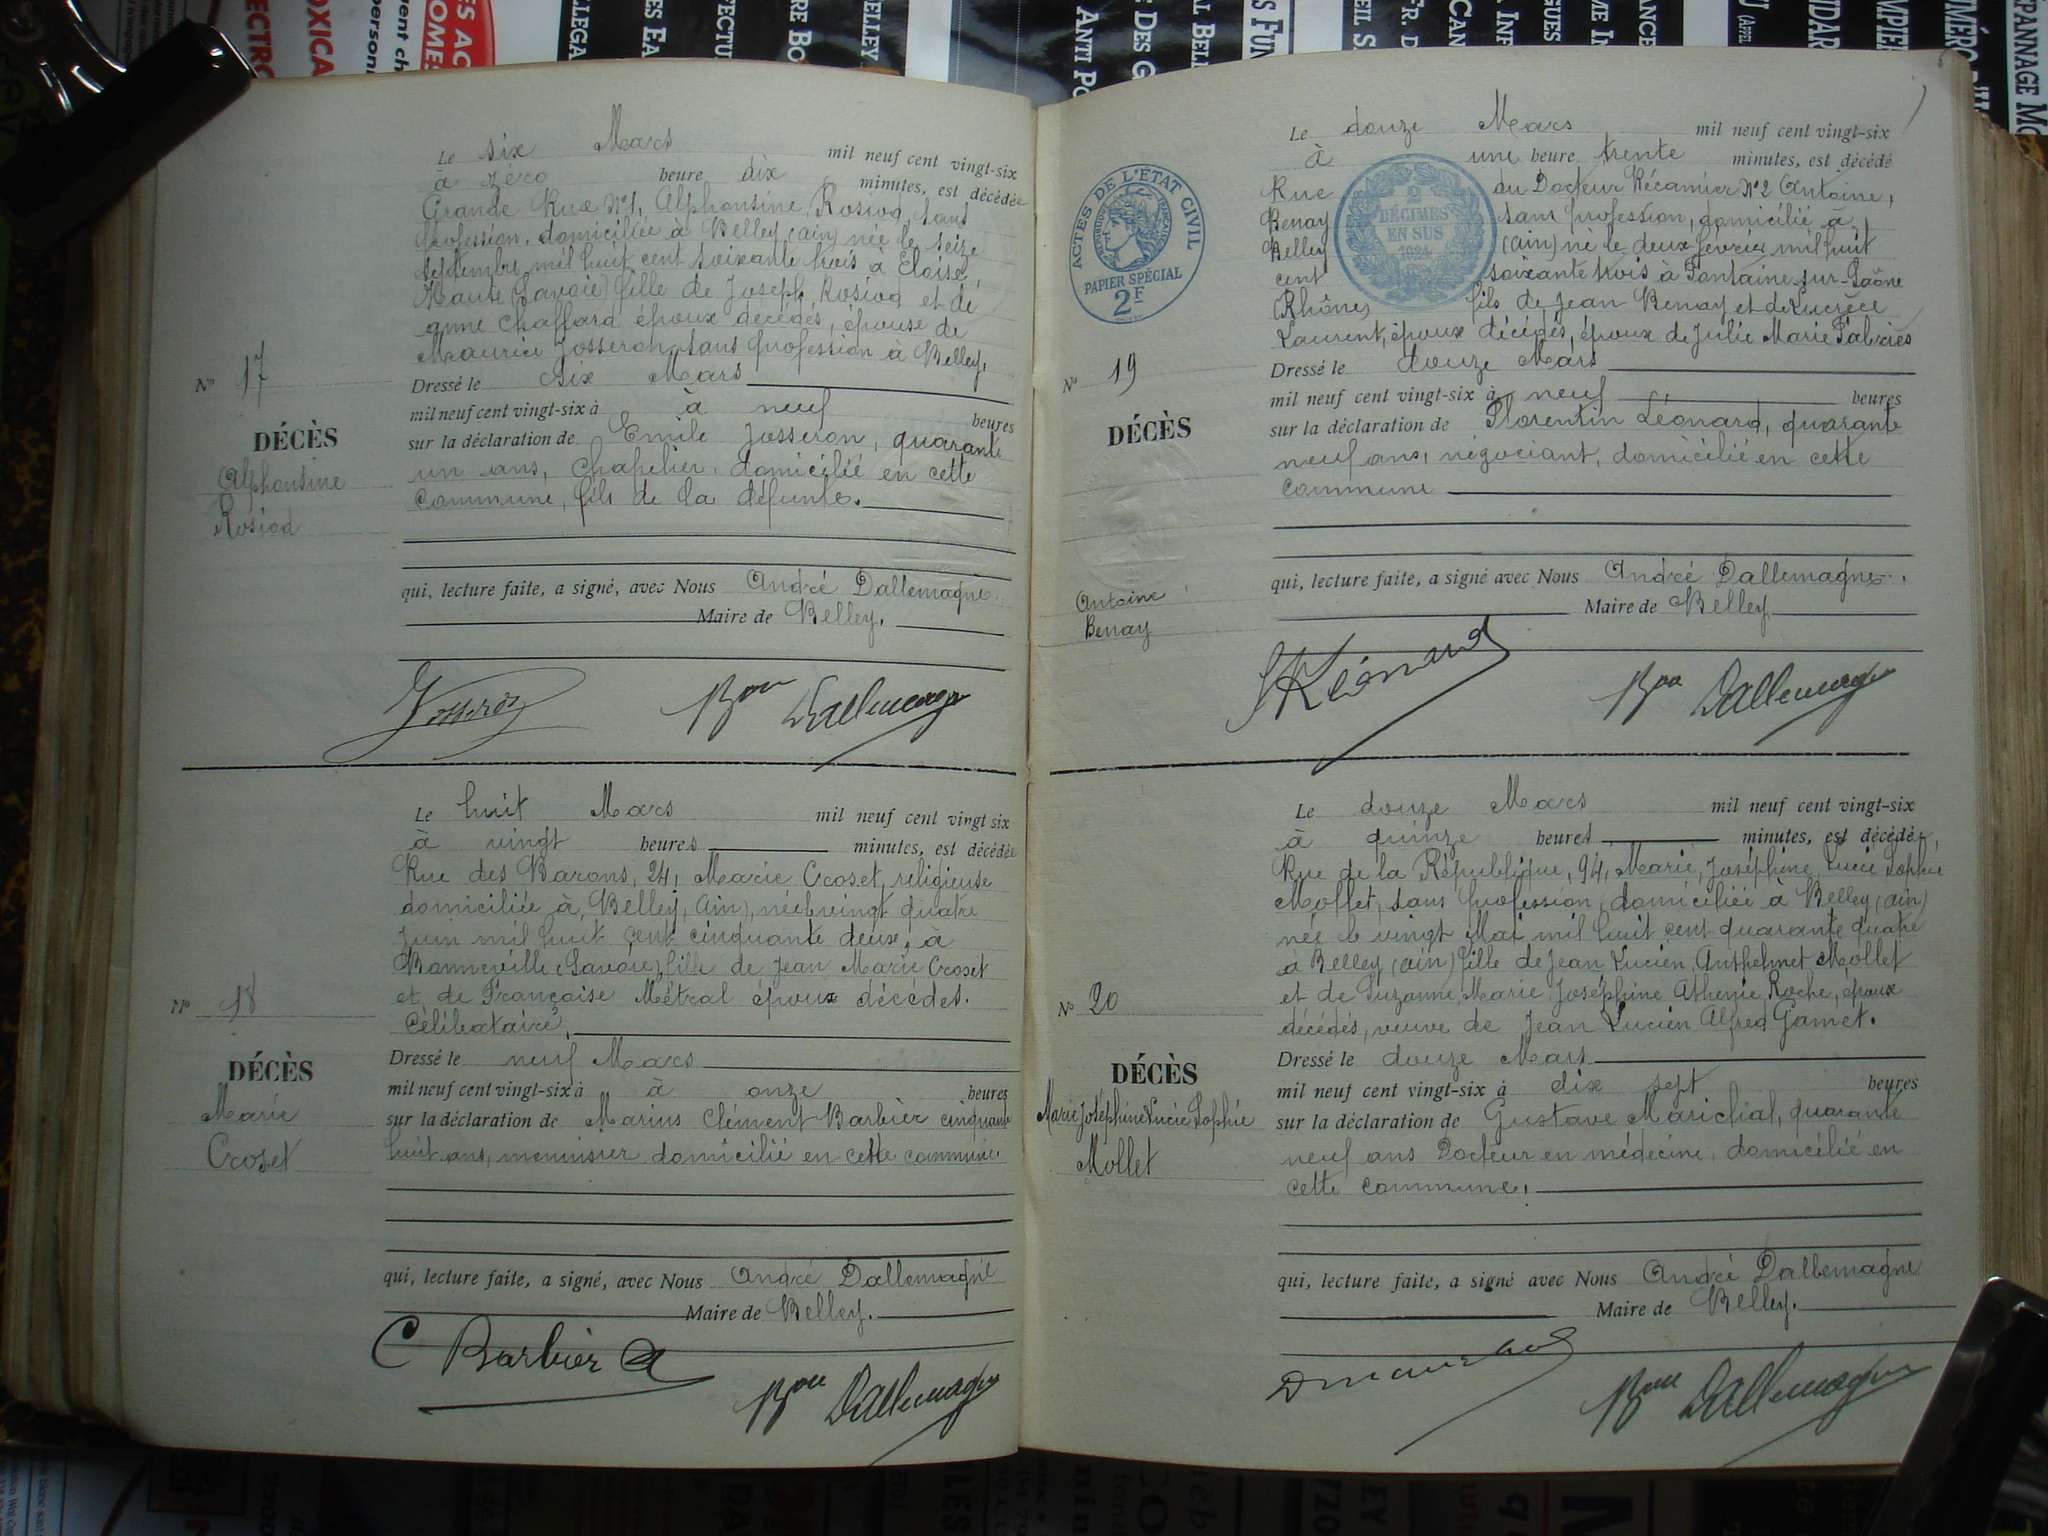 Le six Mars mil neuf cent vingt-six
à zéro heure dix minutes, est décédée
Grande Rue N°1, Alphonsine Rosiod, sans
profession, domiciliée à Belley (ain) née le seize
septembre mil huit cent soixante trois à Eloise
Haute (Savoie) fille de Joseph Rosiod et de
anne Chaffard époux décédés, épouse de
Maurice Josseron, sans profession à Belley.
N° 17
Dressé le six Mars
mil neuf cent vingt-six à à neuf heures
DÉCÈS
sur la déclaration de Emile Josseron, quarante
Alphonsine
un ans, chapelier, domicilié en cette
Rosiod
commune, fils de la défunte.
qui, lecture faite, a signé, avec Nous André Dallemagne
Maire de Belley.
Josseron
Bon Dallemagne
Le huit Mars mil neuf cent vingt six
à vingt heures minutes, est décédée
Rue des Barons, 24, Marie Croset, religieuse
domiciliée à Belley, (Ain), née le vingt quatre
Juin mil huit cent cinquante deux, à
Bonneville (Savoie) fille de Jean Marie Croset
et de Françoise Métral époux décédés.
N° 18
Célibataire,
Dressé le neuf Mars
DÉCÈS
mil neuf cent vingt-six à à onze heures
Marie
sur la déclaration de Marius Clément Barbier cinquante
Croset
huit ans, menuisier domicilié en cette commune.
qui, lecture faite, a signé, avec Nous André Dallemagne
Maire de Belley.
C Barbier
Bon Dallemagne
Le douze Mars mil neuf cent vingt-six
à une heure trente minutes, est décédé
Rue du Docteur Récamier N°2 Antoine,
Benay sans profession, domicilié à
Belley (ain) né le deux février mil huit
cent soixante trois à Fontaine-sur-Saône
(Rhône) fils de Jean Benay et de Lucrèce
Laurent, époux décédés, époux de Julie Marie
ACTES DE L'ÉTAT CIVIL
RÉPUBLIQUE FRANÇAISE
PAPIER SPÉCIAL
2F
2
DÉCIMES
EN SUS
1924
N° 19
Dressé le douze Mars
mil neuf cent vingt-six à neuf heures
DÉCÈS
sur la déclaration de Florentin Léonard, quarante
neuf ans, négociant, domicilié en cette
commune
Antoine
Benay
qui, lecture faite, a signé avec Nous André Dallemagne
Maire de Belley
Léonard
Bon Dallemagne
Le douze Mars mil neuf cent vingt-six
à quinze heures minutes, est décédée,
Rue de la République, 94, Marie, Joséphine Lucie Sophie
Mollet, sans profession, domiciliée à Belley (ain)
née le vingt Mai mil huit cent quarante quatre
à Belley (ain) fille de Jean Lucien Anthelmet Mollet
et de Suzanne Marie Joséphine Athenie Roche, époux
décédés, veuve de Jean Lucien Alfred Gamet.
N° 20
Dressé le douze Mars
mil neuf cent vingt-six à dix sept heures
DÉCÈS
sur la déclaration de Gustave Maréchal, quarante
Marie Joséphine Lucie Sophie
Mollet
neuf ans Docteur en médecine, domicilié en
cette commune.
qui, lecture faite, a signé avec Nous André Dallemagne
Maire de Belley.
Bon Dallemagne